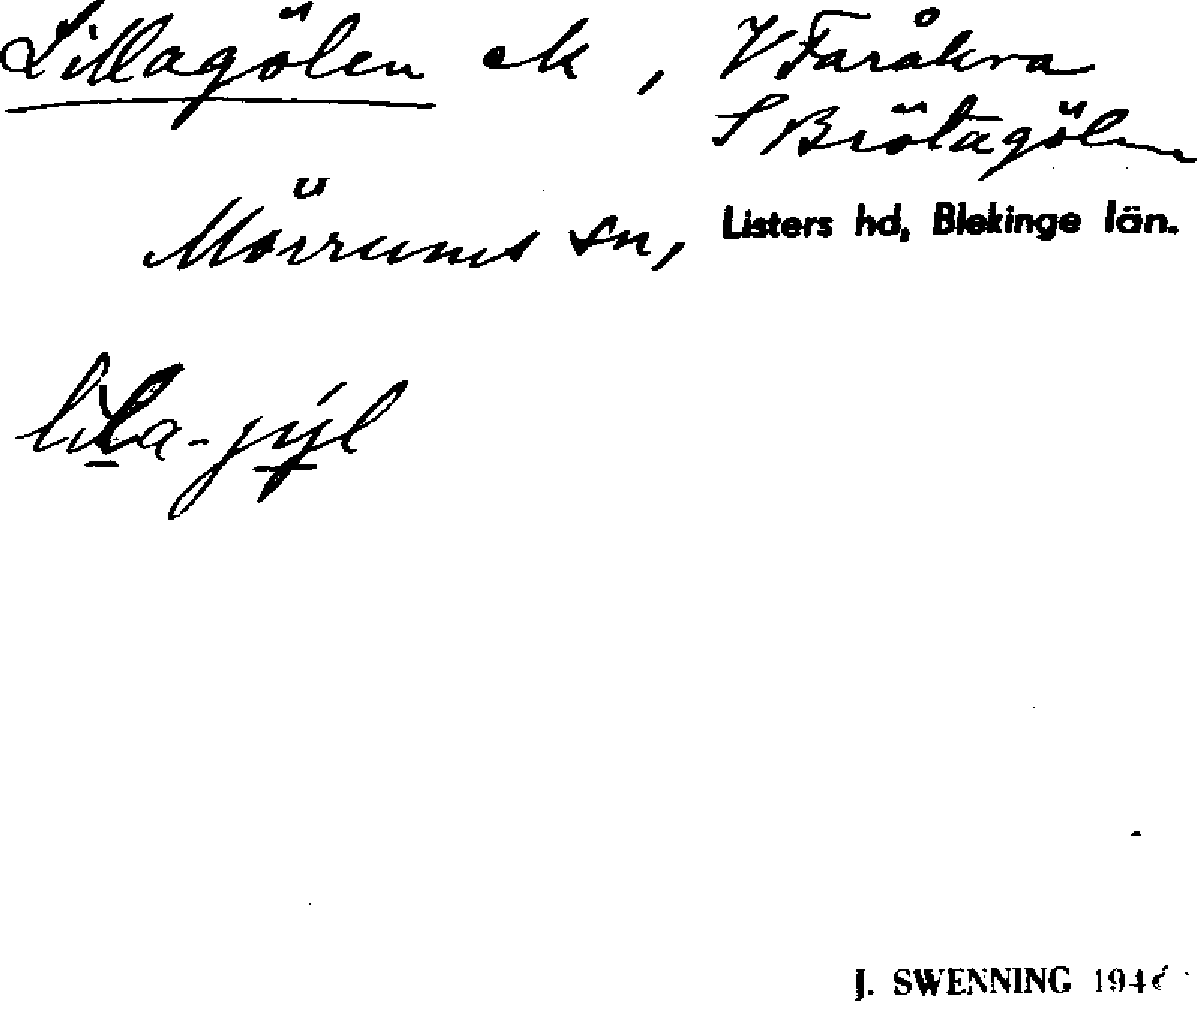 Lillagölen ek , V Faråkra
S Brötagölen
Mörrums sn, Listers hd, Blekinge län.
lila-jyl
J. SWENNING 194